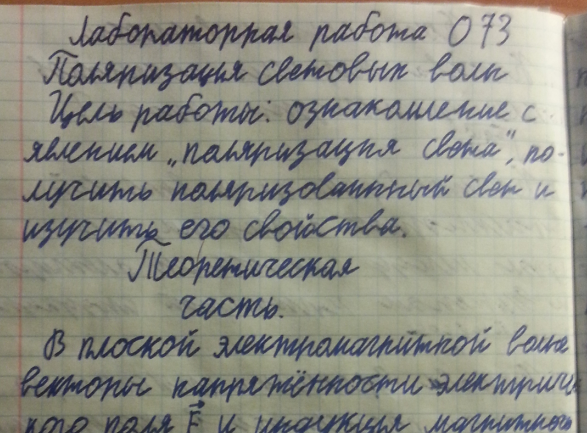 Лабораторная работа О73
Поляризация световых волн
Цель работы: ознакомление с
явлением „поляризация света", по-
лучить поляризованный свет и
изучить его свойства.
Теоретическая
часть.
В плоской электромагнитной волне
векторы напряжённости электриче
кого поля E⃗ и индукция магнитного